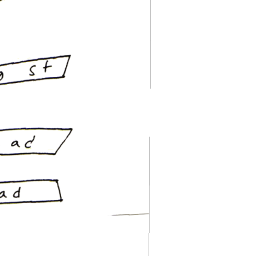 st
ad
ad